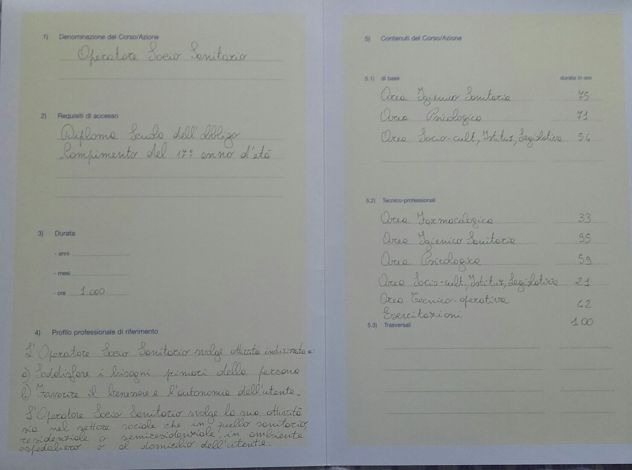 1) Denominazione del Corso/Azione
Operatore Socio Sanitario
2) Requisiti di accesso
Diploma Scuola dell'obbligo
Compimento del 17° anno d'età
3) Durata
- anni
- mesi
- ore 1.000
4) Profilo professionale di riferimento
L'Operatore Socio Sanitario svolge attività indirizzata a:
a) Soddisfare i bisogni primari della persona
b) Favorire il benessere e l'autonomia dell'utente.
L'Operatore Socio Sanitario svolge la sua attività
sia nel settore sociale che in quello sanitario,
residenziale o semiresidenziale, in ambiente
ospedaliero o al domicilio dell'utente.
5) Contenuti del Corso/Azione
5.1) di base durata in ore
Area Igienico Sanitaria 75
Area Psicologica 71
Area Socio-cult, Istituz, Legislativa 54
5.2) Tecnico-professionali
Area Farmacologica 33
Area Igienico Sanitaria 95
Area Psicologica 59
Area Socio-cult, Istituz, Legislativa 21
Area Tecnico-operativa 62
Esercitazioni 100
5.3) Trasversali